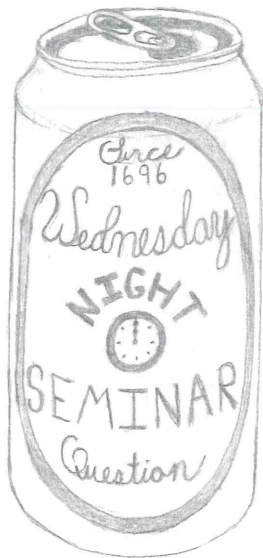 Since
1696
Wednesday
NIGHT
SEMINAR
Question